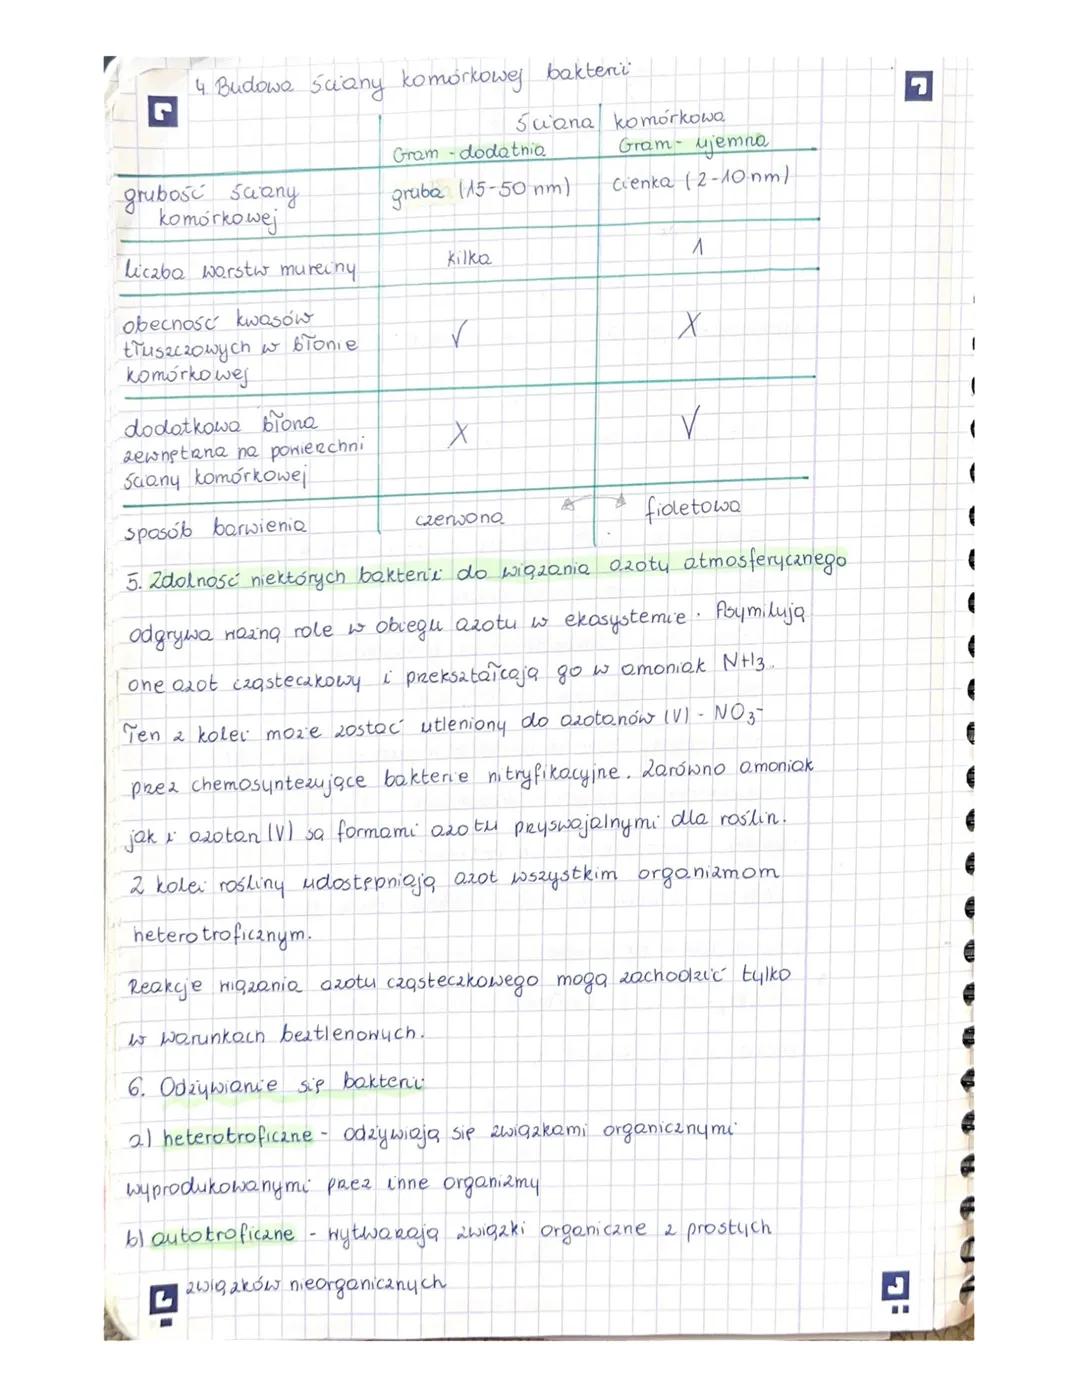 4. Budowa ściany komórkowej bakterii
ściana komórkowa
Gram-dodatnia Gram-ujemna
grubość ściany komórkowej gruba (15-50 nm) cienka (2-10 nm)
liczba warstw mureiny kilka 1
obecność kwasów tłuszczowych w błonie komórkowej √ X
dodatkowa błona zewnętrzna na powierzchni ściany komórkowej X √
sposób barwienia czerwona fioletowa
5. Zdolność niektórych bakterii do wiązania azotu atmosferycznego
odgrywa ważną role w obiegu azotu w ekosystemie. Asymilują
one azot cząsteczkowy i przekształcają go w amoniak NH3.
Ten z kolei może zostać utleniony do azotanów (V) - NO3-
przez chemosyntezujące bakterie nitryfikacyjne. Zarówno amoniak
jak i azotan (V) są formami azotu przyswajalnymi dla roślin.
Z kolei rośliny udostępniają azot wszystkim organizmom
heterotroficznym.
Reakcje wiązania azotu cząsteczkowego mogą zachodzić tylko
w warunkach beztlenowych.
6. Odżywianie się bakterii
a) heterotroficzne - odżywiają się związkami organicznymi
wyprodukowanymi przez inne organizmy
b) autotroficzne - wytwarzają związki organiczne z prostych
związków nieorganicznych